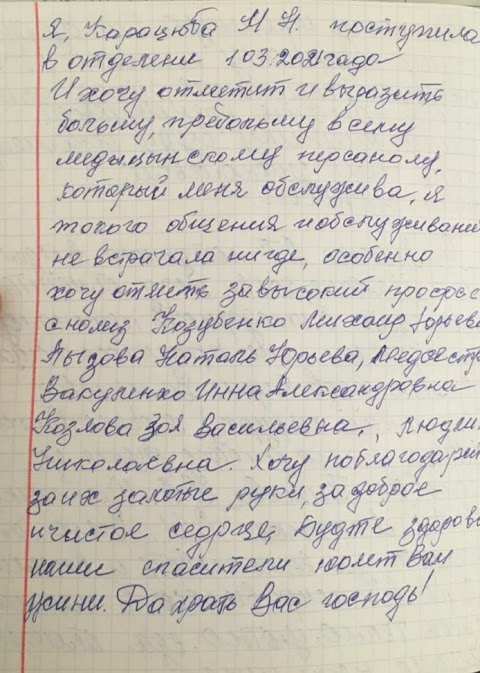 Я, Карацюба Н Н. поступила
в отделени 1 03.2021 года
И хочу отметит и выразить
больму, пребольму всему
медыцынскому персаналу,
который меня обслужива, я
токого общения и обслуживани
не встрачала нигде, особенно
хочу отметь за высокий професс
анолиз Козубенко Михаил Юрьев
Лызова Наталь Юрьева, медсестр
Вакуленко Инна Александровна
Козлова Зоя Васильевна, Людми
Николаевна. Хочу поблагодарит
за их залотые руки, за доброе
и чистое седрце, Будте здаровы
наши спасители Вам
Да храть Вас господь!